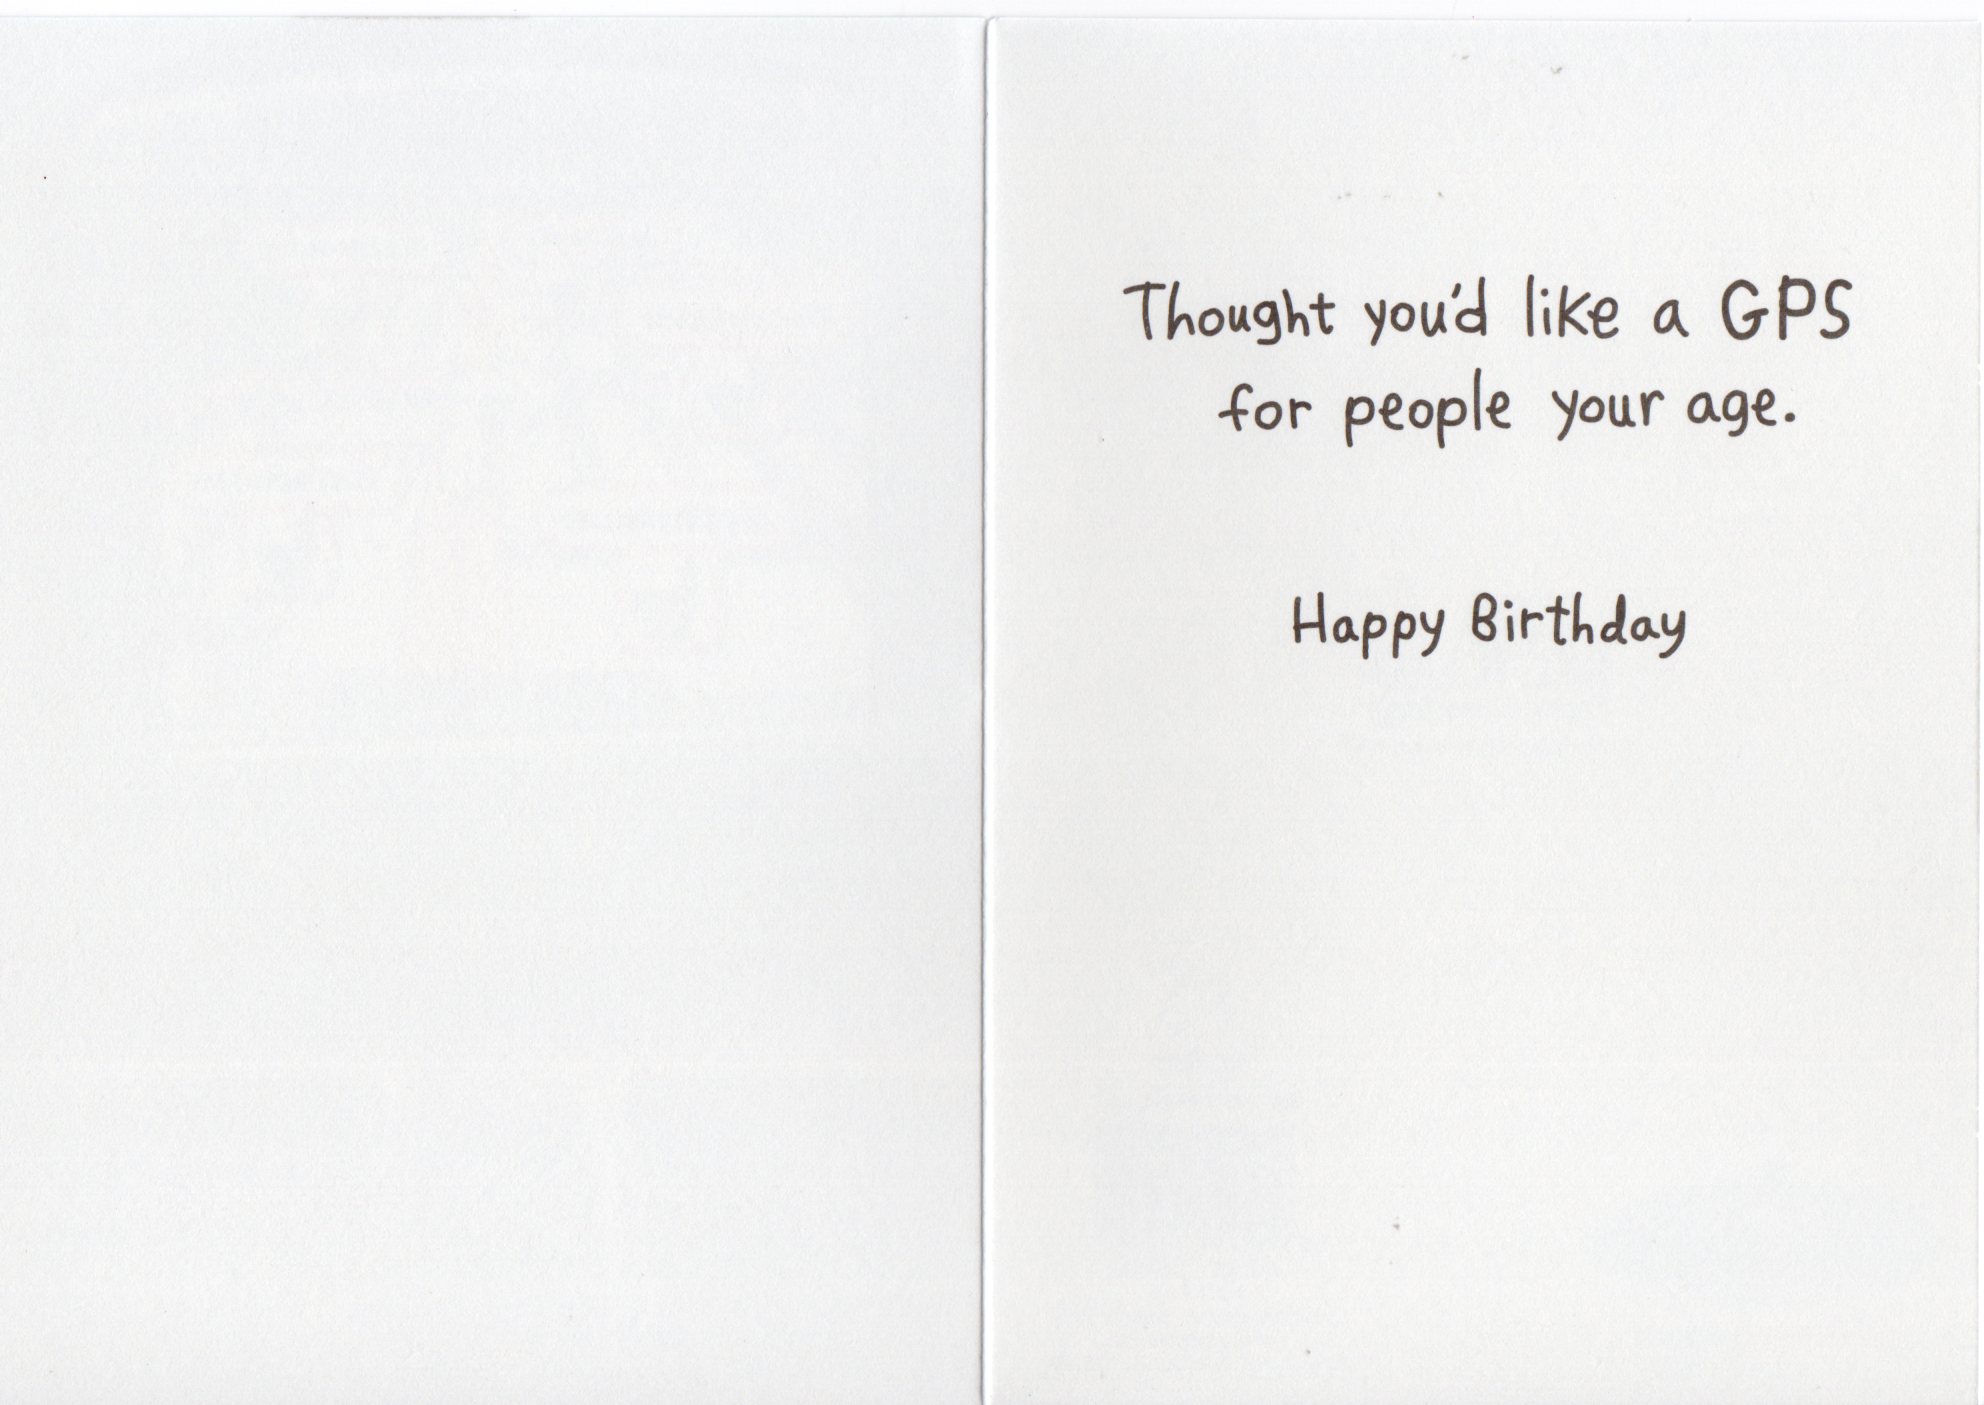 Thought you'd like a GPS
for people your age.
Happy Birthday